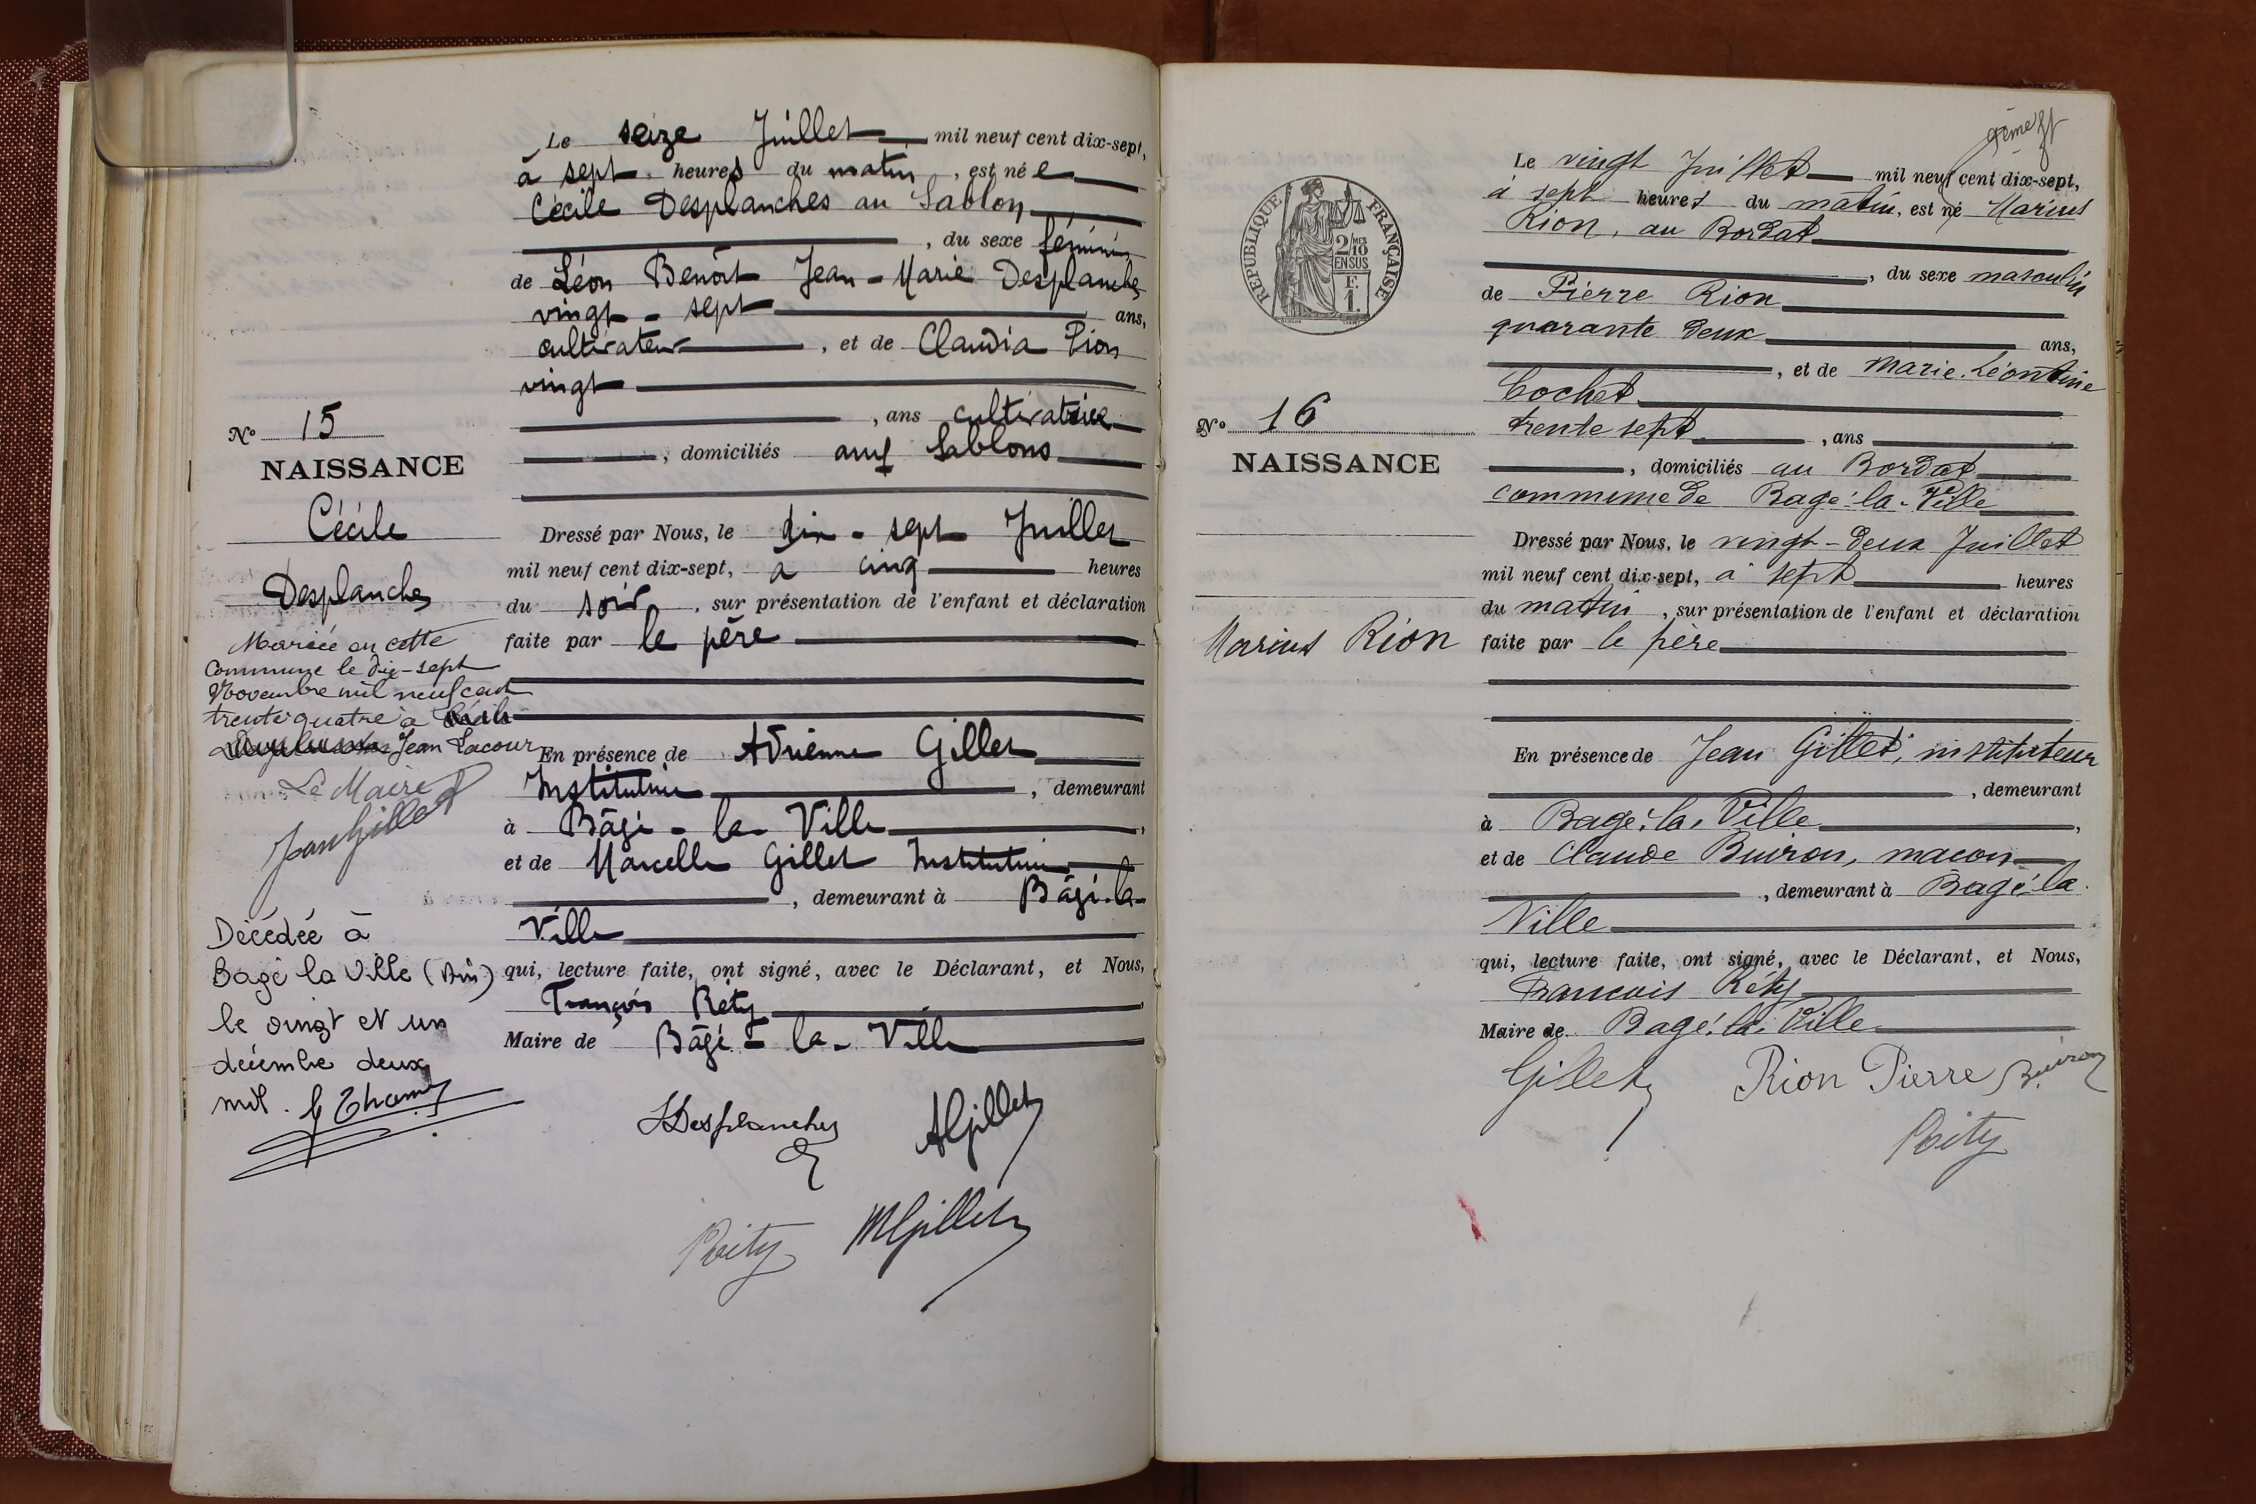 Le seize Juillet mil neuf cent dix-sept,
à sept heures du matin, est née
Cécile Desplanches au Sablon
, du sexe féminin
de Léon Benoît Jean-Marie Desplanches
vingt-sept ans,
cultivateur, et de Claudia Pion
vingt
, ans cultivatrice
, domiciliés aux Sablons
No 15
NAISSANCE
Cécile
Desplanches
Dressé par Nous, le dix-sept Juillet
mil neuf cent dix-sept, à cinq heures
du soir, sur présentation de l'enfant et déclaration
faite par le père
Mariée en cette
commune le dix-sept
Novembre mil neuf cent
trente quatre à
Jean Lacour
Le Maire
Jean Gillet
En présence de Adrienne Gillet
Institutrice, demeurant
à Bâgé-la-Ville,
et de Marcelle Gillet Institutrice
, demeurant à Bâgé-la-
Ville
Décédée à
Bagé la Ville (Ain)
le vingt et un
décembre deux
mil.
qui, lecture faite, ont signé, avec le Déclarant, et Nous,
François Réty
Maire de Bâgé-la-Ville
LDesplanches
AGillet
Réty
MGillet
RÉPUBLIQUE FRANÇAISE
2/10 MES
EN SUS
F.
1
Le vingt Juillet mil neuf cent dix-sept,
à sept heures du matin, est né Marius
Rion, au Bordat
, du sexe masculin
de Pierre Rion
quarante deux ans,
, et de Marie-Léontine
Cochet
trente sept, ans
, domiciliés au Bordat
commune de Bagé-la-Ville
No 16
NAISSANCE
Marius Rion
Dressé par Nous, le vingt-deux Juillet
mil neuf cent dix-sept, à sept heures
du matin, sur présentation de l'enfant et déclaration
faite par le père
En présence de Jean Gillet, instituteur
, demeurant
à Bagé-la-Ville,
et de Claude Buiron, maçon
, demeurant à Bagé-la-
Ville
qui, lecture faite, ont signé, avec le Déclarant, et Nous,
François Réty
Maire de Bagé-la-Ville
Gillet
Rion Pierre
Buiron
Réty